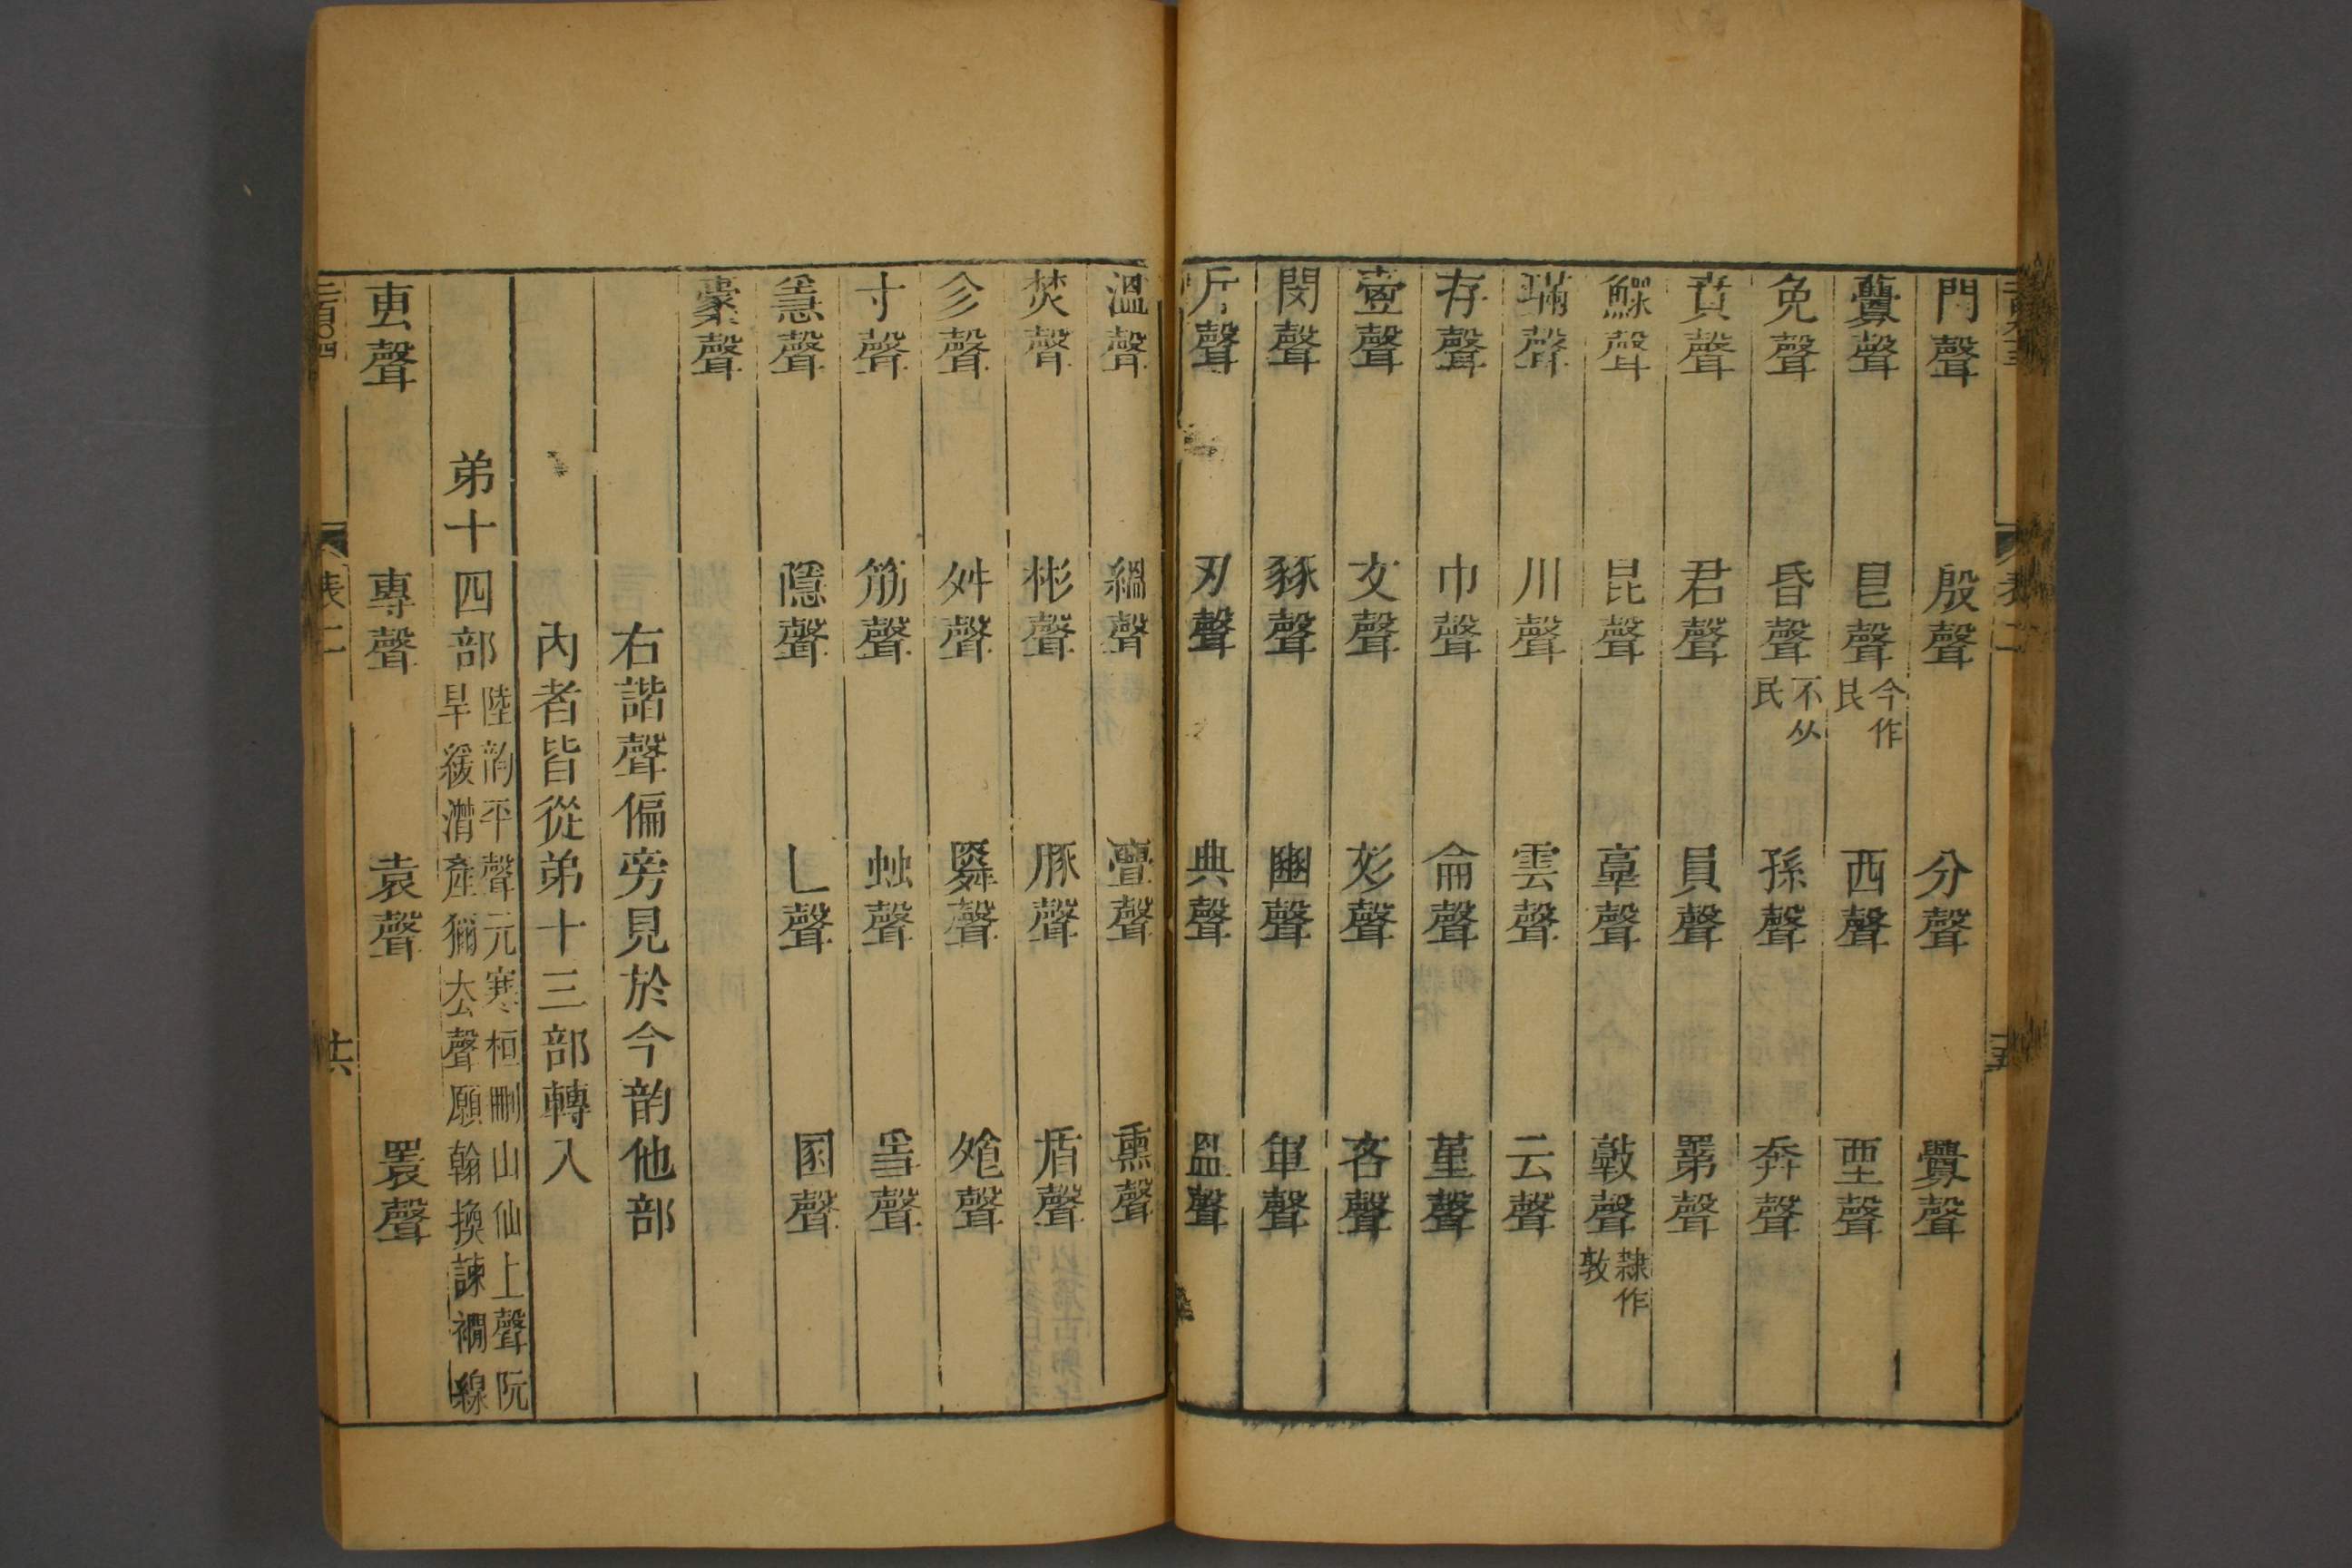 門聲 殷聲 分聲 釁聲
虋聲 㫐聲今作艮 西聲 垔聲
免聲 昏聲不从民 孫聲 奔聲
賁聲 君聲 員聲 睘聲
鰥聲 昆聲 𦎫聲 敦聲隸作敦
璊聲 川聲 雲聲 云聲
存聲 巾聲 侖聲 堇聲
壼聲 文聲 彣聲 吝聲
閔聲 豩聲 豳聲 軍聲
斤聲 刃聲 典聲 昷聲
溫聲 縕聲 亶聲 熏聲
焚聲 彬聲 豚聲 盾聲
㐱聲 舛聲 舜聲 飧聲
寸聲 筋聲 䖵聲 𤔌聲
㥯聲 隱聲 乚聲 圂聲
橐聲
右諧聲偏旁見於今韵他部
內者皆從弟十三部轉入
弟十四部陸韵平聲元寒桓刪山仙上聲阮
旱緩潸產獮去聲願翰換諫襉線
叀聲 專聲 袁聲 睘聲
表二
十六